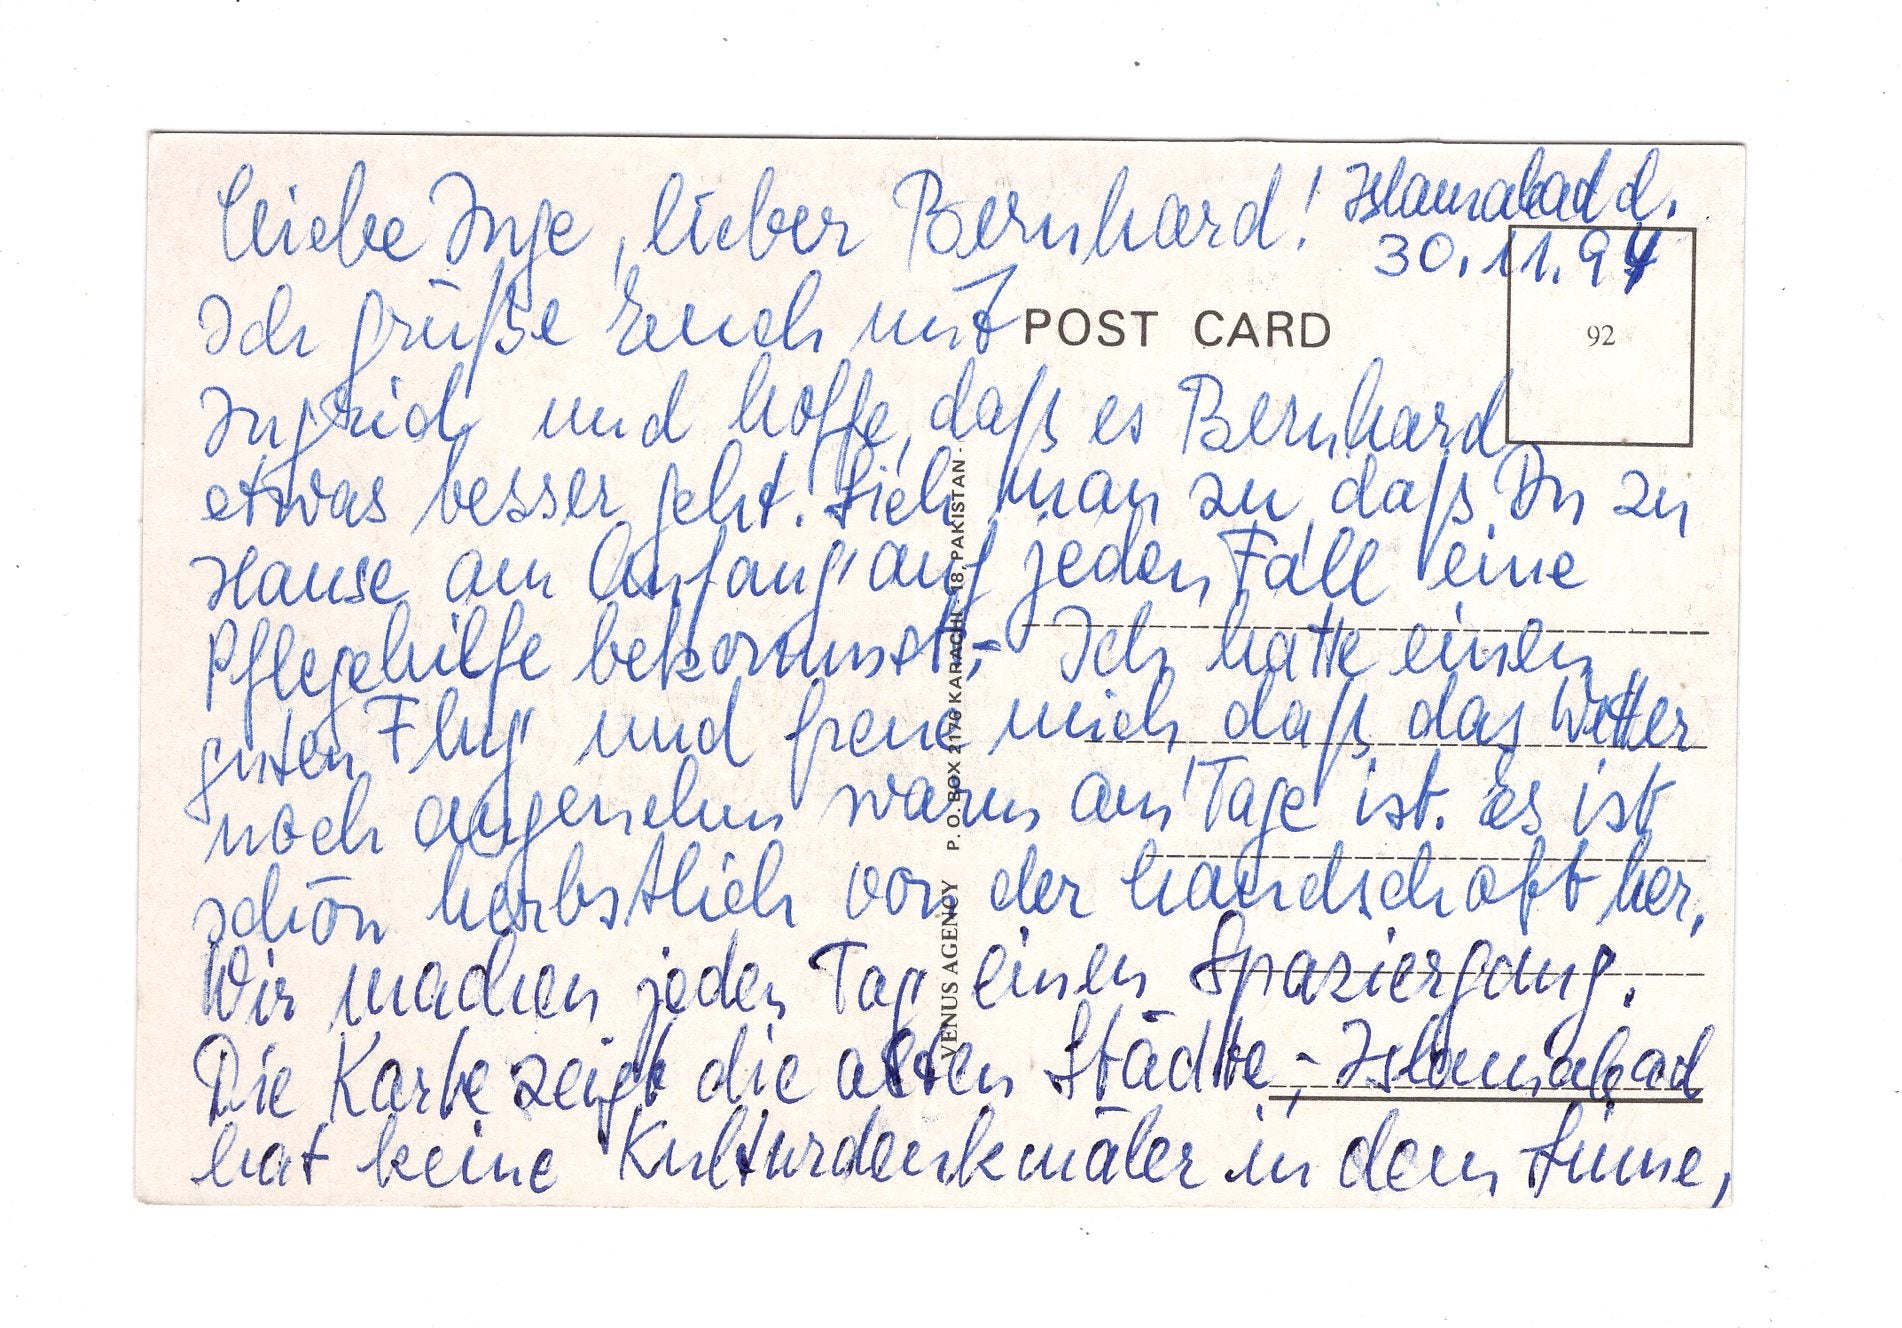 Liebe Inge, lieber Bernhard! Islamabad d.
30.11.94
Ich grüße Euch mit
POST CARD
92
Ingrid und hoffe, daß es Bernhard
etwas besser geht. Sieh man zu, daß Du zu
Hause am Anfang auf jeden Fall eine
Pflegehilfe bekommst,- Ich hatte einen
guten Flug und freue mich daß das Wetter
noch angenehm warm am Tage ist. Es ist
schön herbstlich von der Landschaft her.
Wir machen jeden Tag einen Spaziergang.
Die Karte zeigt die alten Städte,- Islamabad
hat keine Kulturdenkmäler in dem Sinne,
VENUS AGENCY P. O. BOX 2176 KARACHI - 18, PAKISTAN -